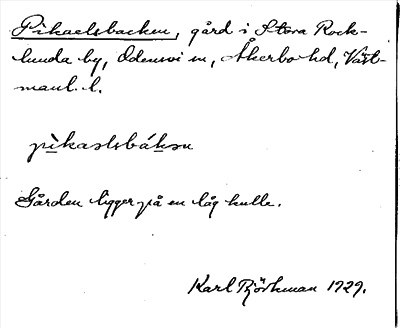 Pikaelsbacken, gård i Stora Rock-
lunda by, Odensvi sn, Åkerbo hd, Väst-
manl. l.
pìkaəlsbákən
Gården ligger på en låg kulle.
Karl Björkman 1929.